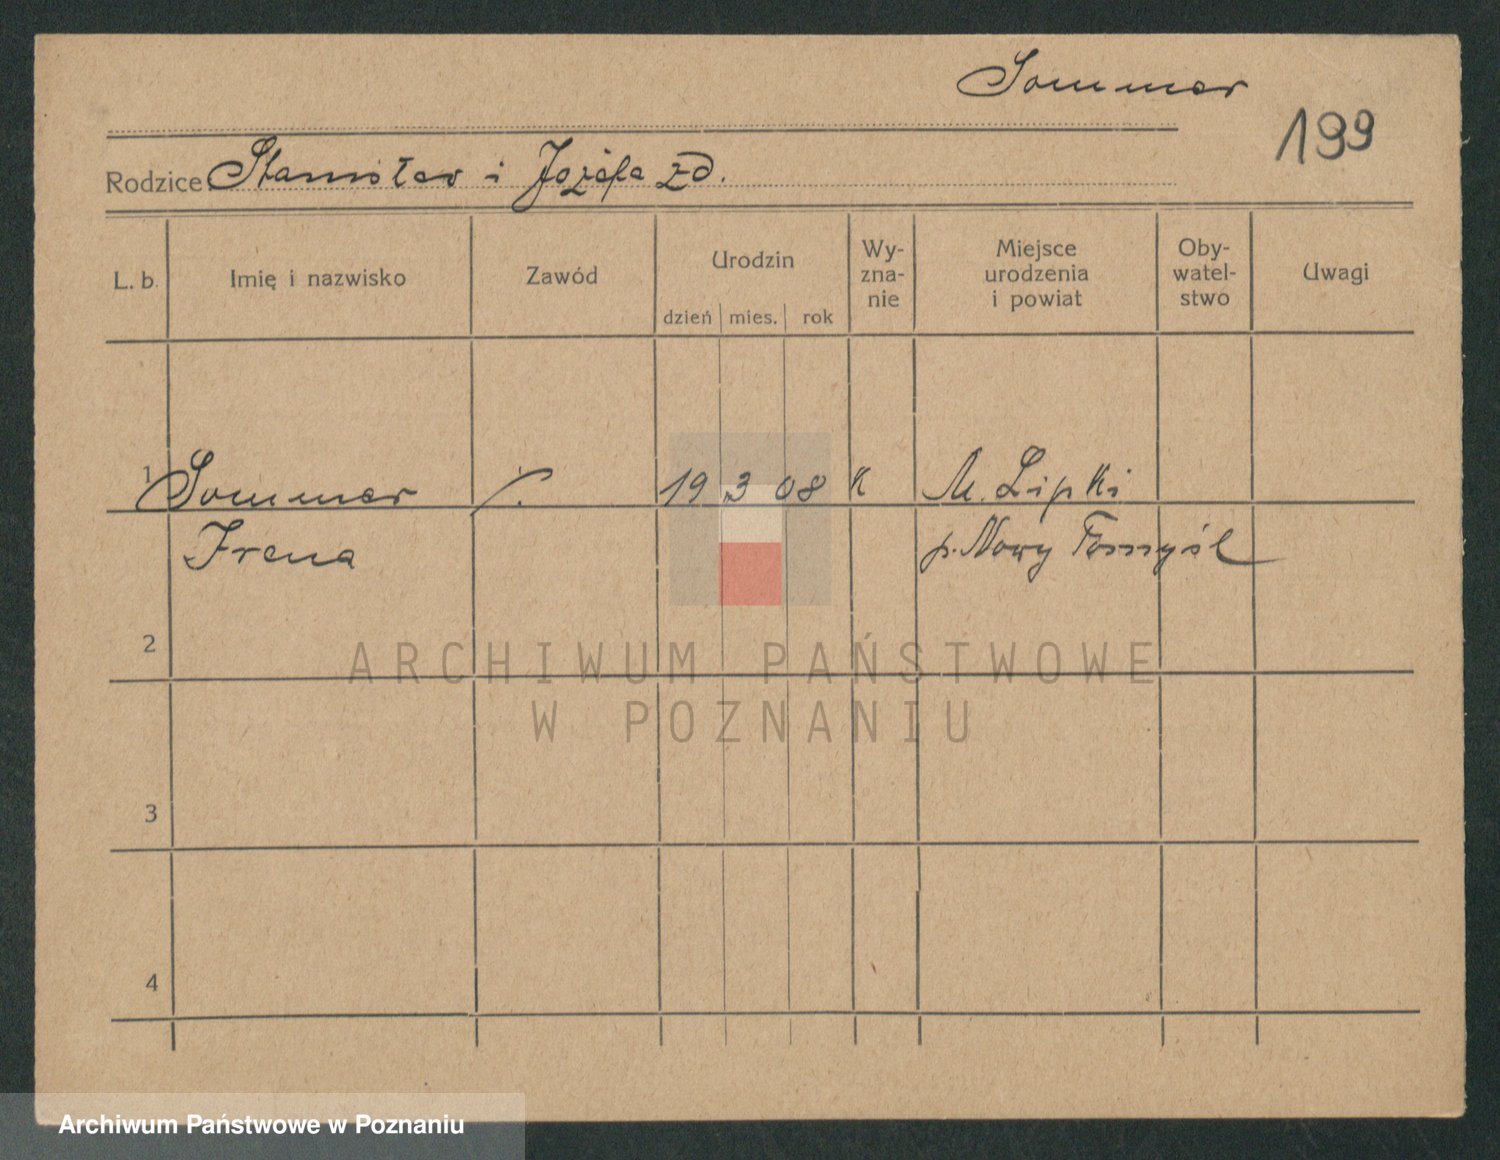 Sommer
199
Rodzice Stanisław i Józefa zd.
L. b. Imię i nazwisko Zawód Urodzin dzień mies. rok Wy-zna-nie Miejsce urodzenia i powiat Oby-watel-stwo Uwagi
1 Sommer 19 3 08 K M. Lipki
Irena p. Nowy Tomyśl
2
3
4
ARCHIWUM PAŃSTWOWE
W POZNANIU
Archiwum Państwowe w Poznaniu